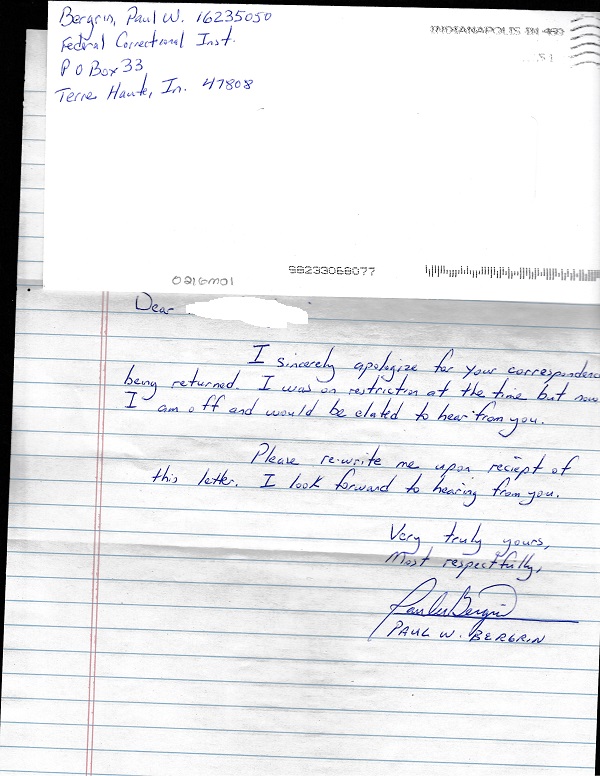 Bergrin, Paul W. 16235050
Federal Correctional Inst.
P O Box 33
Terre Haute, In. 47808
INDIANAPOLIS IN
0216M01
98233068077
Dear
I sincerely apologize for your correspondence
being returned. I was on restriction at the time but now
I am off and would be elated to hear from you.
Please re-write me upon reciept of
this letter. I look forward to hearing from you.
Very truly yours,
Most respectfully,
PAUL W. BERGRIN